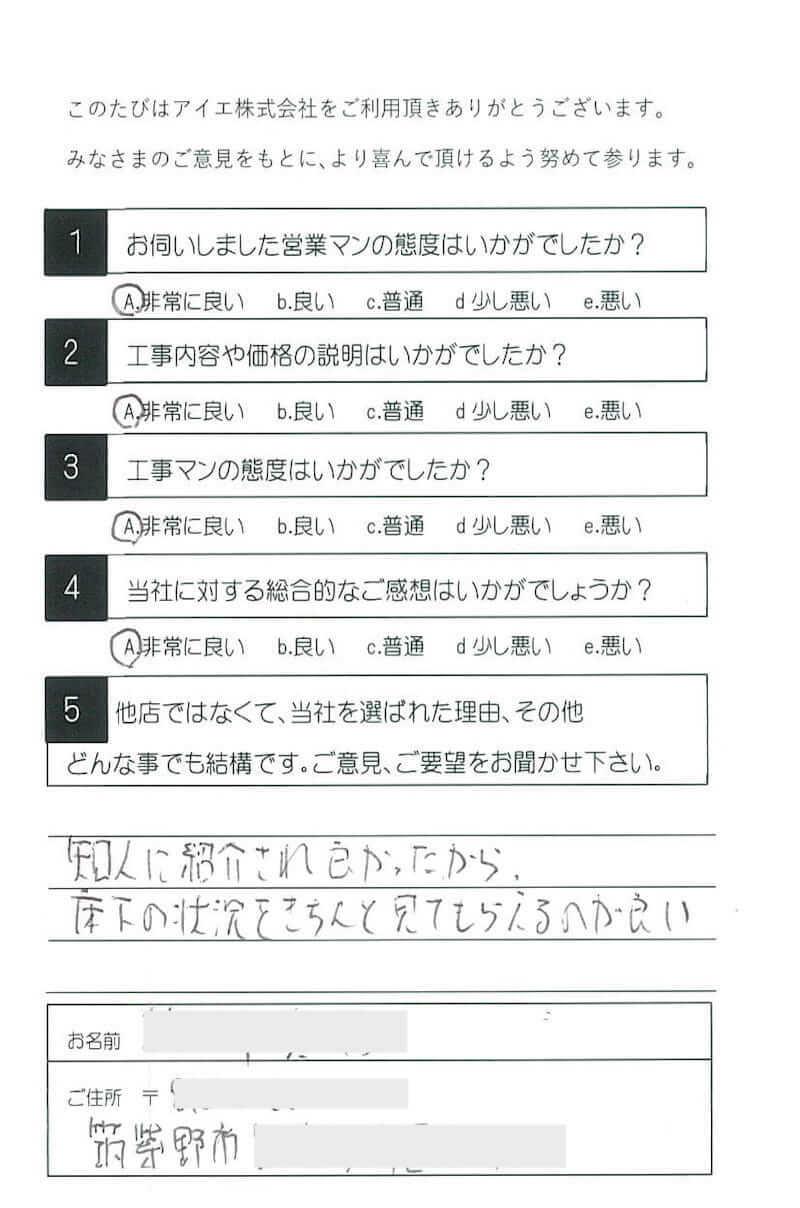 このたびはアイエ株式会社をご利用頂きありがとうございます。
みなさまのご意見をもとに、より喜んで頂けるよう努めて参ります。
1 お伺いしました営業マンの態度はいかがでしたか？
A.非常に良い b.良い c.普通 d 少し悪い e.悪い
2 工事内容や価格の説明はいかがでしたか？
A.非常に良い b.良い c.普通 d 少し悪い e.悪い
3 工事マンの態度はいかがでしたか？
A.非常に良い b.良い c.普通 d 少し悪い e.悪い
4 当社に対する総合的なご感想はいかがでしょうか？
A.非常に良い b.良い c.普通 d 少し悪い e.悪い
5 他店ではなくて、当社を選ばれた理由、その他
どんな事でも結構です。ご意見、ご要望をお聞かせ下さい。
知人に紹介され良かったから、
床下の状況をきちんと見てもらえるのが良い
お名前
ご住所 〒
筑紫野市